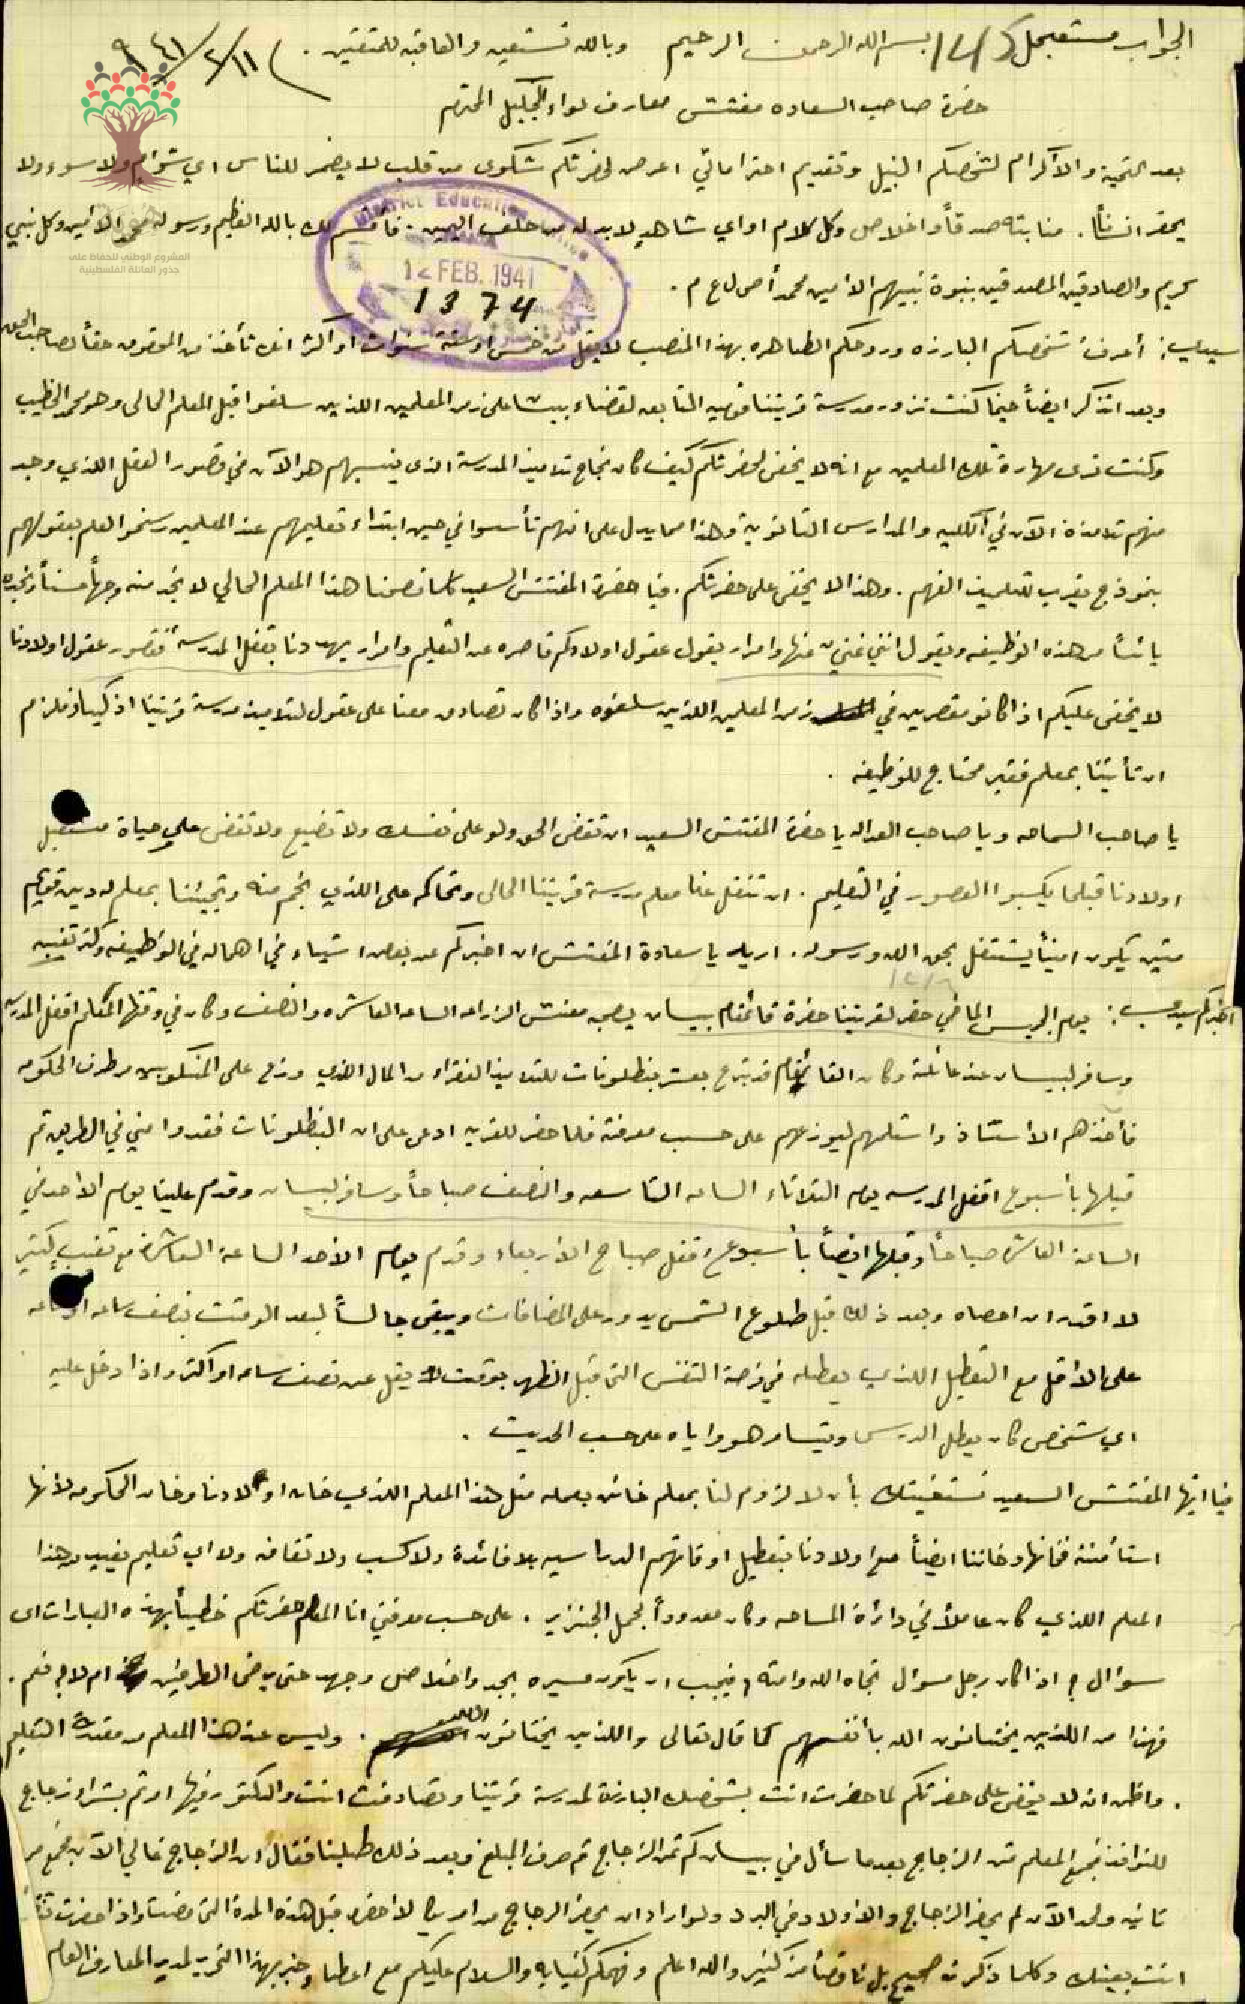 الجواب مستعجل بسم الله الرحمن الرحيم وبالله نستعين والعاقبه للمتقين . ١١/٢/٩٤١
حضرة صاحب السعاده مفتش معارف لواء الجليل المحترم
بعد التحية والاكرام لشخصكم النبيل وتقديم احتراماتي اعرض لحضرتكم شكوى من قلب لا يضمر للناس اي شر ولا سوء ولا
يحقر انساناً . صدقاً واخلاص وكل كلام او اي شاهد لا بد له من حلف اليمين . فأقسم لك بالله العظيم ورسوله محمد الامين وكل نبي
كريم والصادقين المصدقين بنبوة نبيهم الامين محمد
District Education Office
12 FEB. 1941
1374
المشروع الوطني للحفاظ على
جذور العائلة الفلسطينية
سيدي : أعرف شخصكم البارزه وروحكم الطاهره بهذا المنصب لا يقل من خمس او ستة سنوات او اكثر
وبعد اتذكر ايضاً حينما كنت تزور مدرسة قريتنا قوميه التابعه لقضاء بيسان على زمن المعلمين اللذين سلفوا قبل المعلم الحالي وهو محمد الخطيب
وكنت ترى مهارة تلك المعلمين مع انه لا يخفى لحضرتكم كيف كان نجاح تلاميذ المدرسة الذي ينسبهم هو الآن في قصور العقل اللذي وجد
منهم تلامذة الآن في الكليه والمدارس الثانوية وهذا مما يدل على انهم تأسسوا في حين ابتداء تعليمهم عند المعلمين رسخوا العلم بعقولهم
بنموذج يقرب للتلميذ الفهم . وهذا لا يخفى على حضرتكم . فيا حضرة المفتش السعيد هذا المعلم الحالي لا نجد منه وجهاً حسناً ونجده
يائساً من هذه الوظيفه ويقول انني غني عنها وامرار يقول عقول اولادكم قاصره عن التعليم وامرار يهددنا بقفل المدرسة فقصور عقول اولادنا
لا يخفى عليكم اذا كانو مقصرين في زمن المعلمين اللذين سلفوه واذا كان تصادق معنا على عقول تلاميذ مدرسة قريتنا اذكياء فلزم
ان تأتينا بمعلم فقير محتاج للوظيفه .
يا صاحب السماحه ويا صاحب العداله يا حضرة المفتش السعيد ان تقضى الحق ولو على نفسك ولا تضيع ولا تقضى على حياة مستقبل
اولادنا قبلما يكسبوا القصور في التعليم . ان تنقل عنا معلم مدرسة قريتنا الحالي وتحاكمه على اللذي نجم منه وتجيئنا بمعلم له دين قويم
متين يكون اميناً يشتغل بحق الله ورسوله . اريد يا سعادة المفتش ان اخبركم عن بعض اشياء في اهماله في الوظيفه وكثر تغيبه
اخبركم سيدي : يوم الخميس الماضي حضر لقريتنا حضرة قائمقام بيسان بصحبه مفتش الزراعه الساعه العاشره والنصف وكان في وقتها المعلم اقفل المدرسه
وسافر لبيسان عند عائلته وكان القائمقام قد تبرع بعشر بنطلونات للتلاميذ الفقراء من المال اللذي وزع على المنكوبين من طرف الحكومه
فأخذهم الاستاذ واستلمهم ليوزعهم على حسب معرفته فلما حضر للقريه ادعى على ان البنطلونات فقدوا مني في الطريق ثم
قبلها بأسبوع اقفل المدرسه يوم الثلاثاء الساعه التاسعه والنصف صباحاً وسافر لبيسان وقدم علينا يوم الاحد في
الساعة العاشرة صباحاً وقبلها ايضاً بأسبوع اقفل صباح الاربعاء وقدم يوم الاحد الساعة العاشرة مع تغيب كثير
لا اقدر ان احصاه وبعد ذلك قبل طلوع الشمس يدور على المضافات ويبقى جالساً لبعد الوقت بنصف ساعه او ساعه
على الاقل مع التعطيل اللذي يعطله في فرصة التنفس التي قبل الظهر بوقت لا يقل عن نصف ساعه او اكثر واذا دخل عليه
اي شخص كان يعطل الدرس ويتسامر هو واياه على حسب الحديث .
فيا ايها المفتش السعيد نستغيثك بأن لا لزوم لنا بمعلم خائن بعمله مثل هذا المعلم اللذي خان اولادنا وخان الحكومه لأنها
استأمنته فخانها وخاننا ايضاً مع اولادنا بتعطيل اوقاتهم الدراسيه بلا فائدة ولا كسب ولا ثقافه ولا اي تعليم يفيد وهذا
المعلم اللذي كان عاملاً في دائرة المساحه وكان معدوداً لحمل الجنزير . على حسب معرفتي انا المعلم حضرتكم خطيباً بهذه العبارات اي
سؤال ؟ اذا كان رجل مسؤال تجاه الله وامته فيجب ان يكون مسيره بجد واخلاص وجهد حتى يرضى الطرفين ام لا بد نعم .
فهذا من اللذين يختانون الله بأنفسهم كما قال تعالى واللذين يختانون الله . وليس عند هذا المعلم من مقدرة التعليم
. واظن انه لا يخفى على حضرتكم لما حضرت انت بشخصك البارزه لمدرسة قريتنا وتصادفت انت والدكتور وفيها امرتم بشراء زجاج
للنوافذ فجمع المعلم ثمن الزجاج بعدما سأل في بيسان كم ثمن الزجاج ثم صرف المبلغ وبعد ذلك طلبنا فقال ان الزجاج غالي الآن نجمع مره
ثانيه ولحد الآن لم يحضر الزجاج والاولاد في البرد ولو اراد ان يحضر الزجاج من امريكا لاحضره قبل هذه المدة التي مضت واذا حضرت
انت بعينك وكلما ذكرت صحيح بل ناقصاً من كثير والله اعلم وفهمكم كفايه والسلام عليكم مع اعطاء خبر بهذا التحرير لمدير المعارف العام